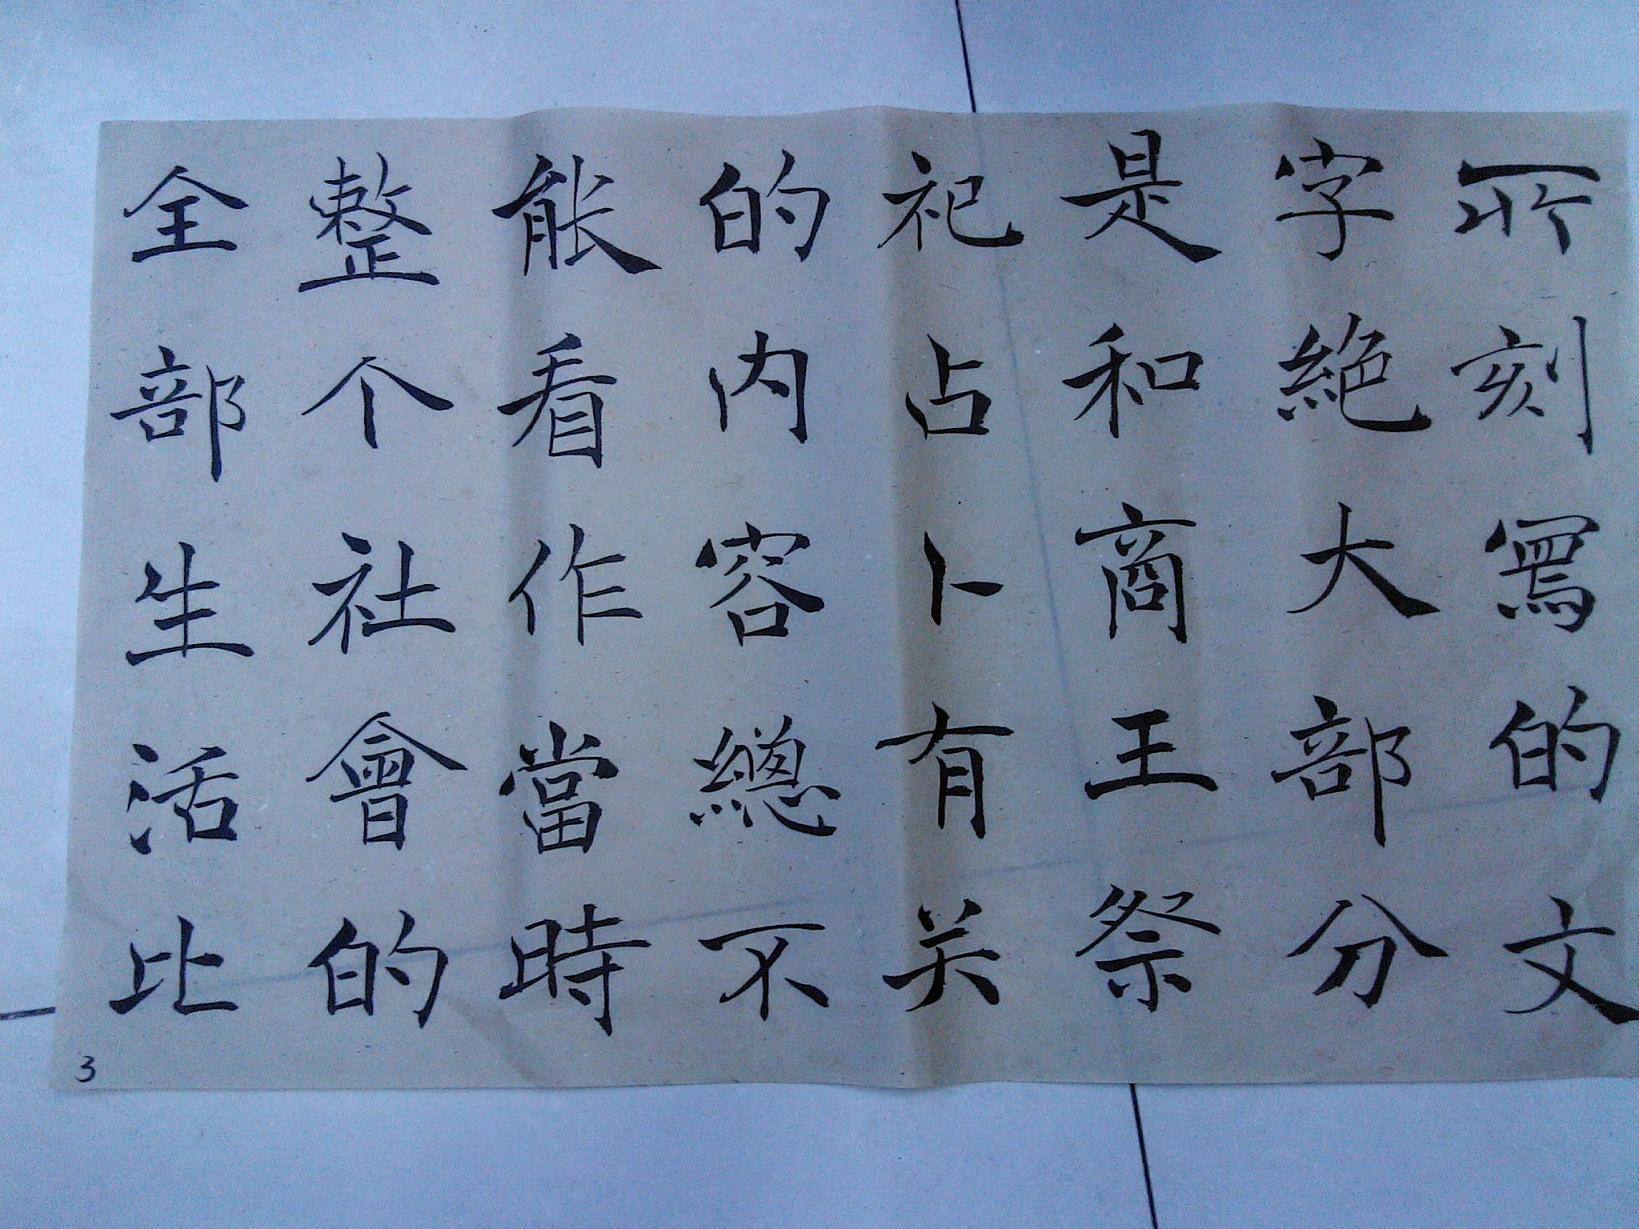 所刻寫的文
字絕大部分
是和商王祭
祀占卜有关
的内容總不
能看作當時
整个社會的
全部生活比
3